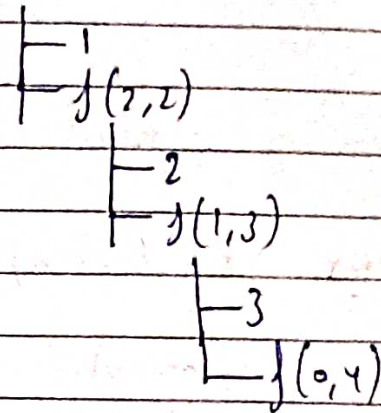 1
f(2,2)
2
f(1,3)
3
f(0,4)